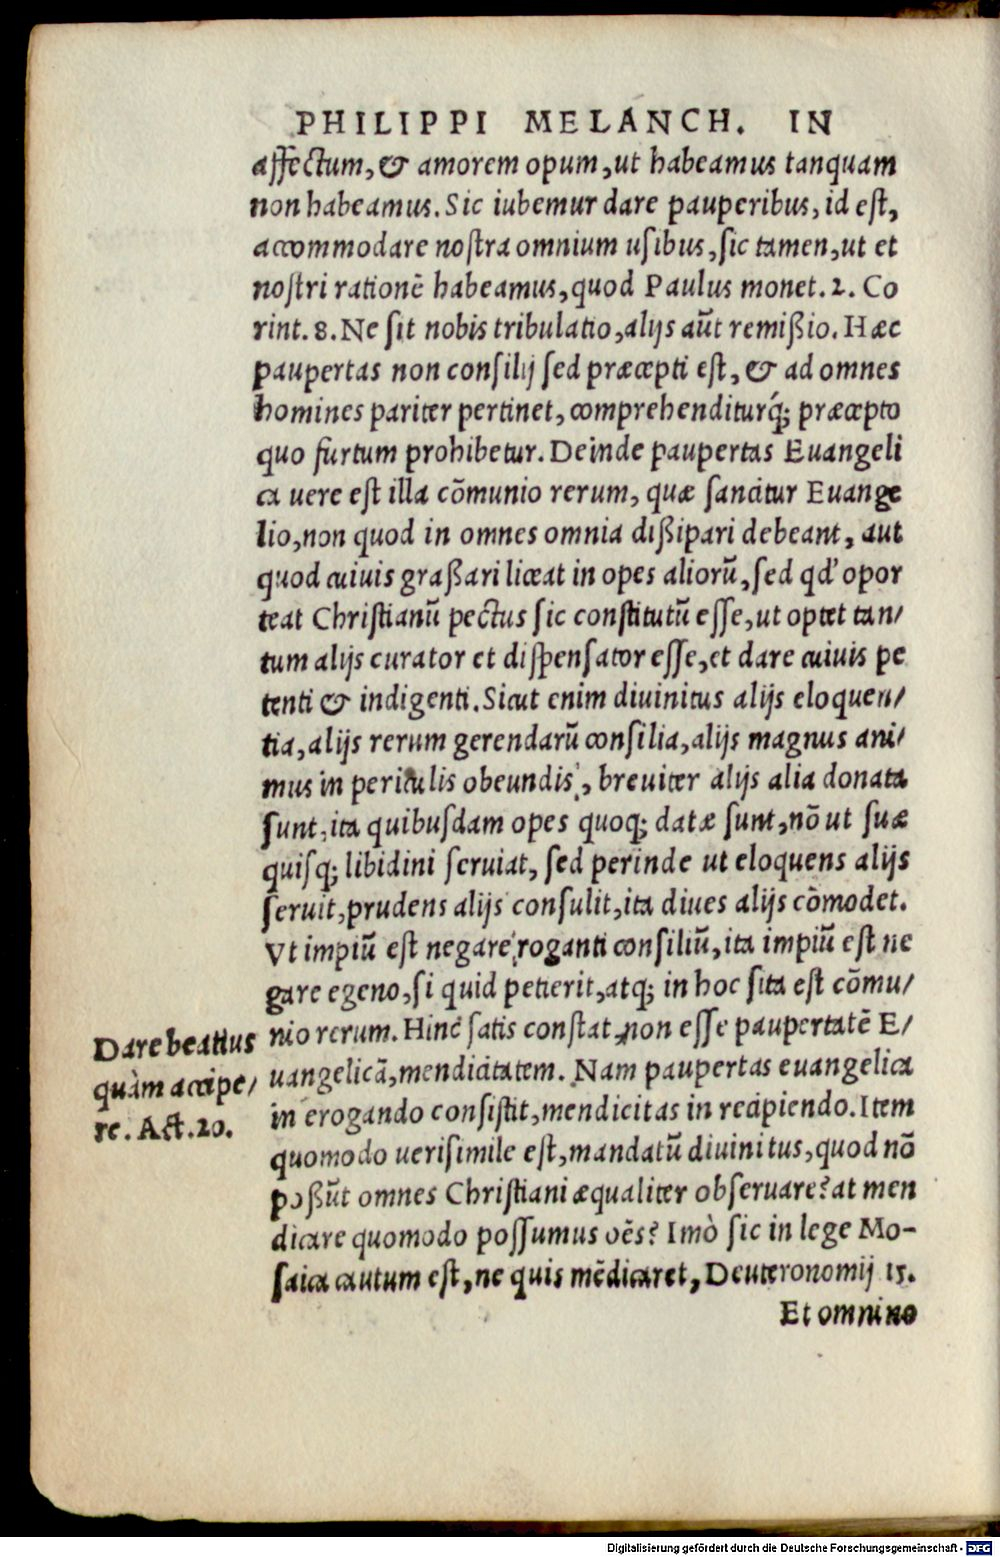 PHILIPPI MELANCH. IN
affectum, & amorem opum, ut habeamus tanquam
non habeamus. Sic iubemur dare pauperibus, id est,
accommodare nostra omnium usibus, sic tamen, ut et
nostri rationē habeamus, quod Paulus monet. 2. Co
rint. 8. Ne sit nobis tribulatio, alijs aūt remißio. Hæc
paupertas non consilij sed præcepti est, & ad omnes
homines pariter pertinet, comprehenditurq́; præcepto
quo furtum prohibetur. Deinde paupertas Euangeli
ca uere est illa cōmunio rerum, quæ sancitur Euange
lio, non quod in omnes omnia dißipari debeant, aut
quod cuiuis graßari liceat in opes aliorū, sed qd' opor
teat Christianū pectus sic constitutū esse, ut optet tan/
tum alijs curator et dispensator esse, et dare cuiuis pe
tenti & indigenti. Sicut enim diuinitus alijs eloquen/
tia, alijs rerum gerendarū consilia, alijs magnus ani/
mus in periculis obeundis, breuiter alijs alia donata
sunt, ita quibusdam opes quoq; datæ sunt, nō ut suæ
quisq; libidini seruiat, sed perinde ut eloquens alijs
seruit, prudens alijs consulit, ita diues alijs cōmodet.
Vt impiū est negare roganti consiliū, ita impiū est ne
gare egeno, si quid petierit, atq; in hoc sita est cōmu/
nio rerum. Hinc satis constat, non esse paupertatē E/
uangelicā, mendicitatem. Nam paupertas euangelica
in erogando consistit, mendicitas in recipiendo. Item
quomodo uerisimile est, mandatū diuinitus, quod nō
poßūt omnes Christiani æqualiter obseruare? at men
dicare quomodo possumus oēs? Imò sic in lege Mo-
saica cautum est, ne quis mēdicaret, Deuteronomij 15.
Et omnino
Dare beatius
quàm accipe/
re. Act. 20.
Digitalisierung gefördert durch die Deutsche Forschungsgemeinschaft - DFG